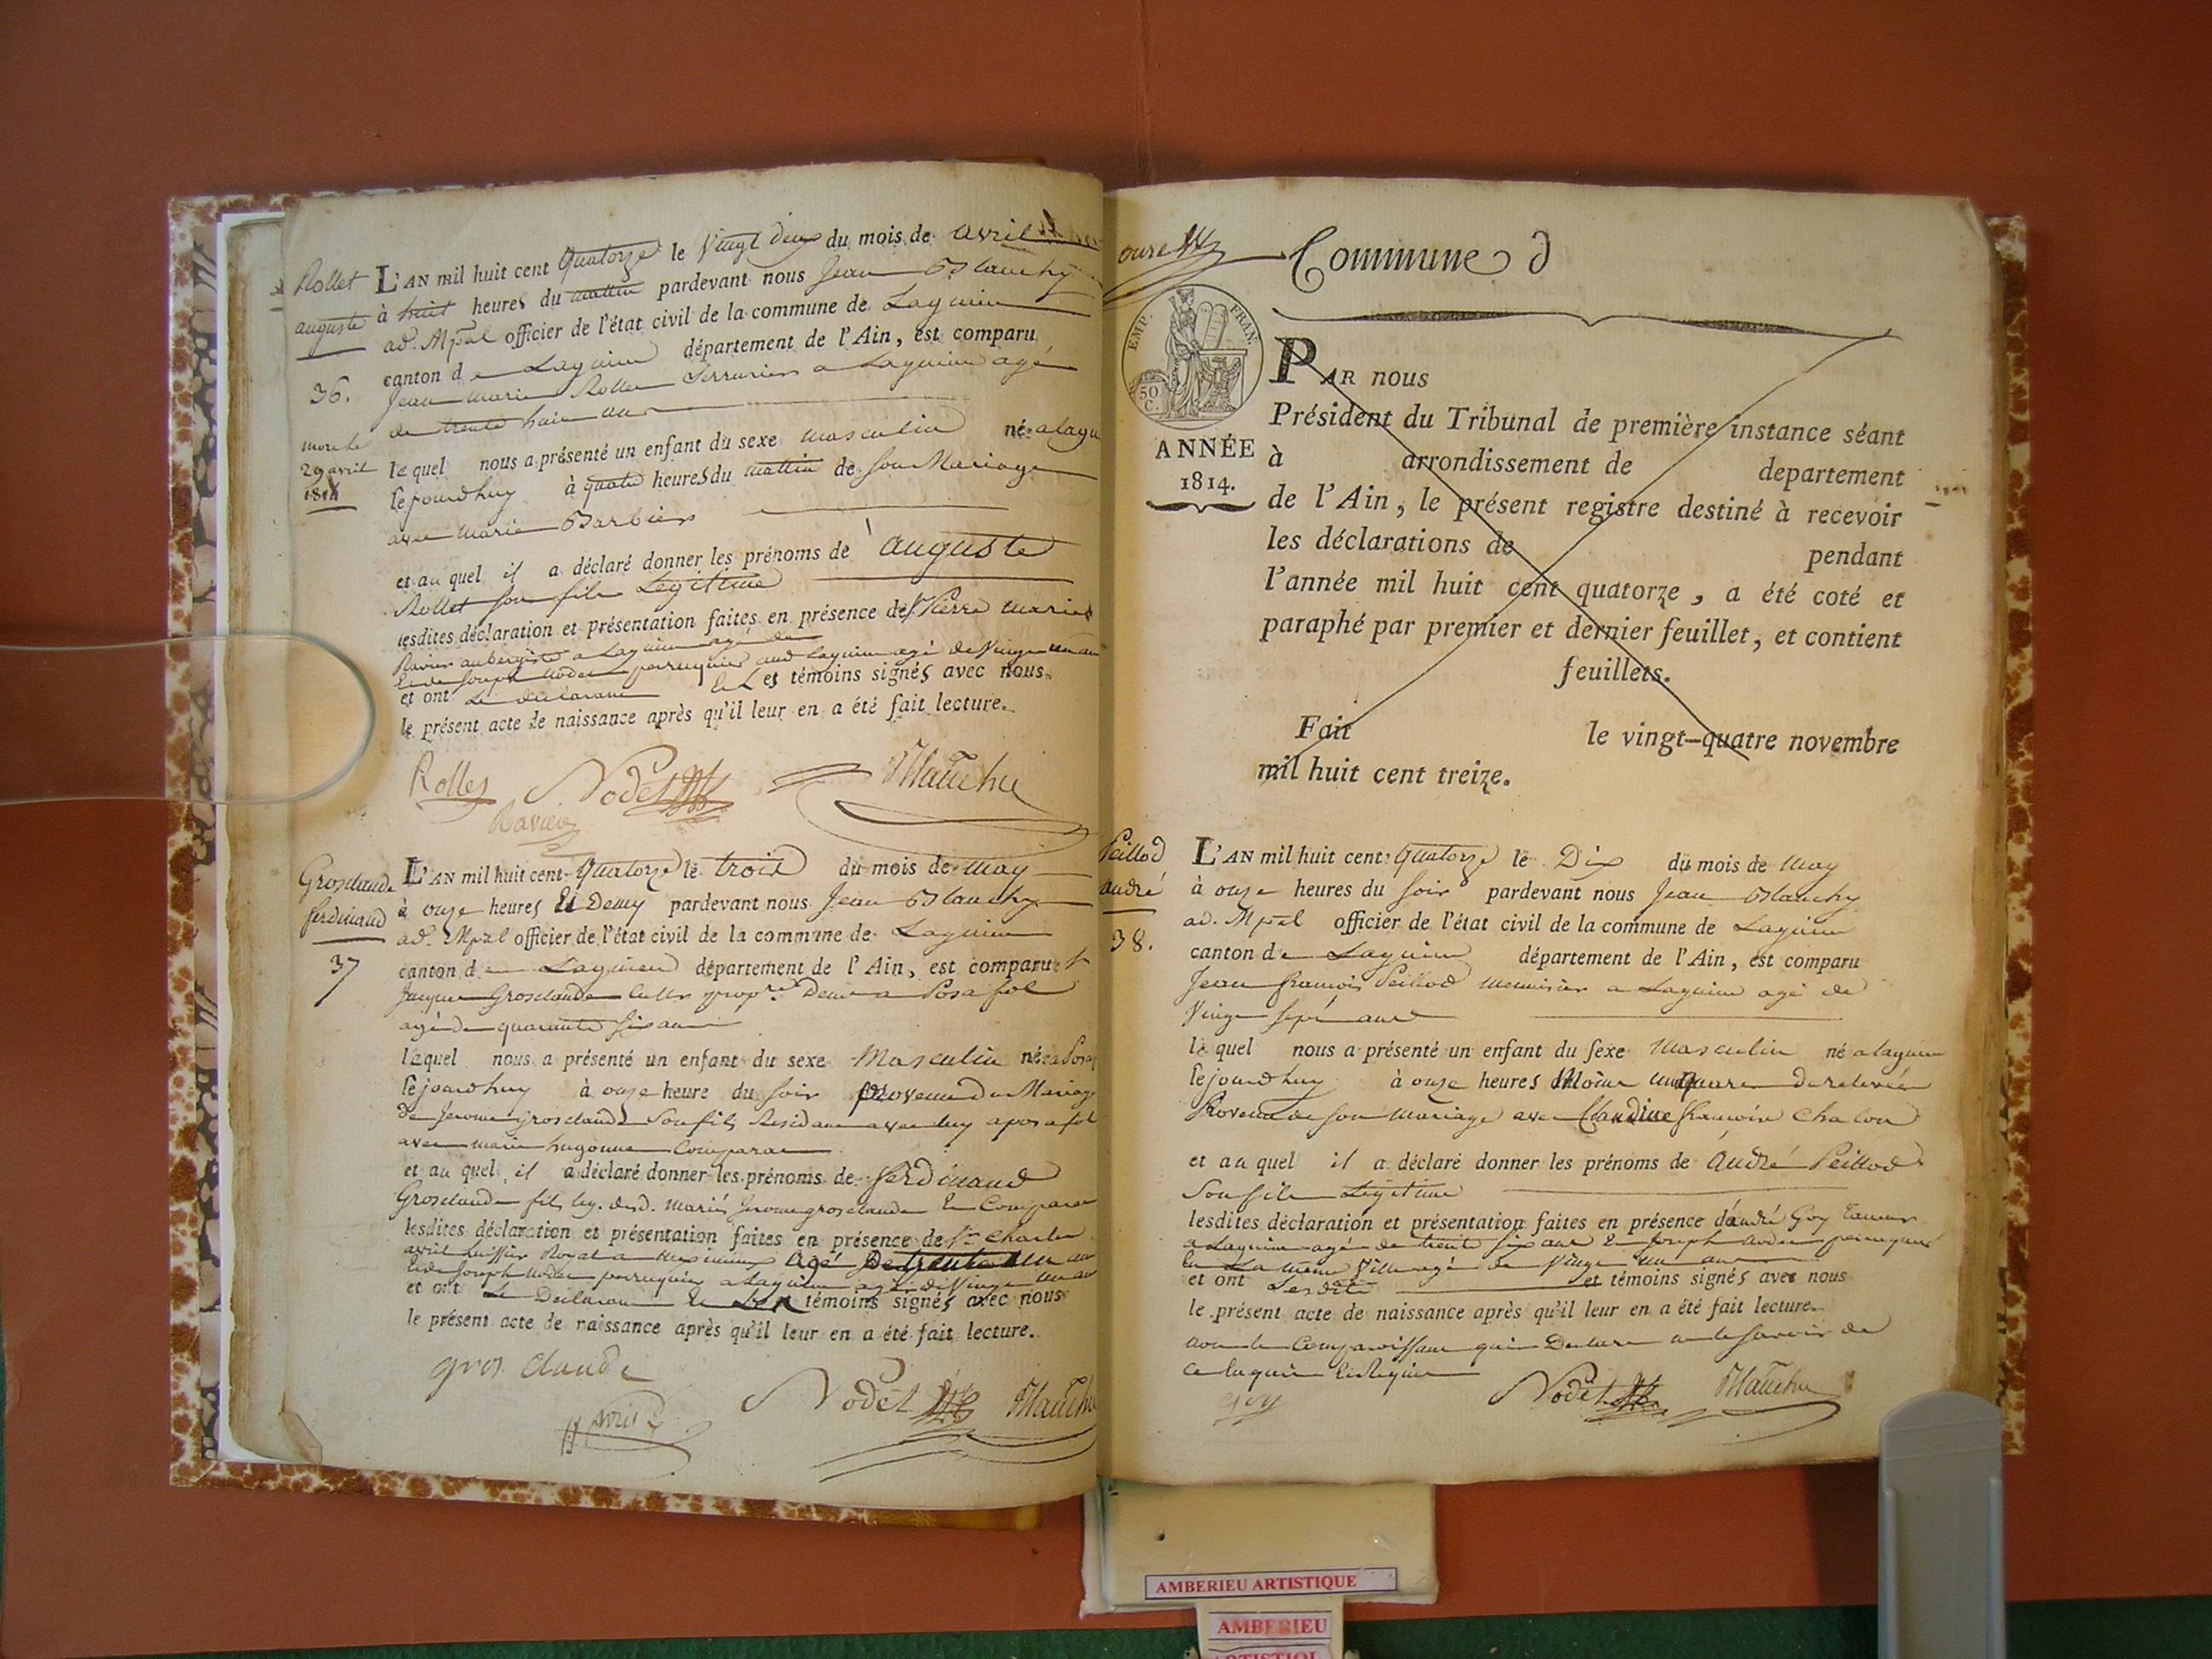 Rollet
auguste
36.
mort le
29 avril
1814
L'AN mil huit cent Quatorze le Vingt deux du mois de avril
à huit heures du mattin pardevant nous Jean Blanchy
ad. Mpal officier de l'état civil de la commune de Lagnieu
canton de Lagnieu département de l'Ain, est comparu
Jean marie Rollet Serrurier a Lagnieu agé
de trente huit ans
lequel nous a présenté un enfant du sexe masculin né a lagn
cejourdhuy à quatre heures du mattin de son Mariage
avec Marie Barbier
et au quel il a déclaré donner les prénoms de auguste
Rollet son fils Legitime
lesdites déclaration et présentation faites en présence de Pierre marie
Ravier aubergiste a Lagnieu agé de
et de Joseph Nodet perruquier aud Lagnieu agé de Vingt un an
et ont Le declarant et Les témoins signés avec nous
le présent acte de naissance après qu'il leur en a été fait lecture.
Rollet Nodet Blanchy
Ravier
Grosclaude
ferdinand
37
L'AN mil huit cent Quatorze le trois du mois de may
à onze heures Et Demy pardevant nous Jean Blanchy
ad. Mpal officier de l'état civil de la commune de Lagnieu
canton de Lagnieu département de l'Ain, est comparu
Jacques Grosclaude propre. Demt a Posafol
agé de quarante six ans
lequel nous a présenté un enfant du sexe Masculin né a Posa
cejourdhuy à onze heure du soir provenu de Mariage
de Jerome Grosclaude Son fils Residant avec luy a posafol
avec marie hugonne Comparat
et au quel il a déclaré donner les prénoms de ferdinand
Grosclaude fils leg. desd. Mariés Jerome grosclaude Et Comparat
lesdites déclaration et présentation faites en présence de Sr. Charles
avril huissier Royal a Meximieux Agé De trente un an
et de Joseph Nodet perruquier a Lagnieu agé de Vingt un an
et ont Le Declarant Et Les témoins signés avec nous
le présent acte de naissance après qu'il leur en a été fait lecture.
gros Claude
avril
Nodet Blanchy
onze
Commune d
EMP. FRAN.
50 C.
ANNÉE
1814.
PAR nous
Président du Tribunal de première instance séant
à arrondissement de departement
de l'Ain, le présent registre destiné à recevoir
les déclarations de pendant
l'année mil huit cent quatorze, a été coté et
paraphé par premier et dernier feuillet, et contient
feuillets.
Fait le vingt-quatre novembre
mil huit cent treize.
Peillod
André
38.
L'AN mil huit cent Quatorze le Dix du mois de May
à onze heures du soir pardevant nous Jean Blanchy
ad. Mpal officier de l'état civil de la commune de Lagnieu
canton de Lagnieu département de l'Ain, est comparu
Jean francois Peillod Menuisier a Lagnieu agé de
Vingt sept ans
le quel nous a présenté un enfant du sexe Masculin né a lagnieu
cejourdhuy à onze heures Moins un quare de relevée
Provenu de son Mariage avec Claudine francoise Chalon
et au quel il a déclaré donner les prénoms de André Peillod
Son fils Légitime
lesdites déclaration et présentation faites en présence d'andré Goy
a Lagnieu agé de trente six ans Et Joseph Nodet perruquier
en La meme Ville agé de Vingt un an
et ont Lesdits et témoins signés avec nous
le présent acte de naissance après qu'il leur en a été fait lecture.
non le Comparoissant qui a Declare ne le savoir de
ce Enquis Et Requis
Goy Nodet Blanchy
AMBERIEU ARTISTIQUE
AMBERIEU
ARTISTIQU